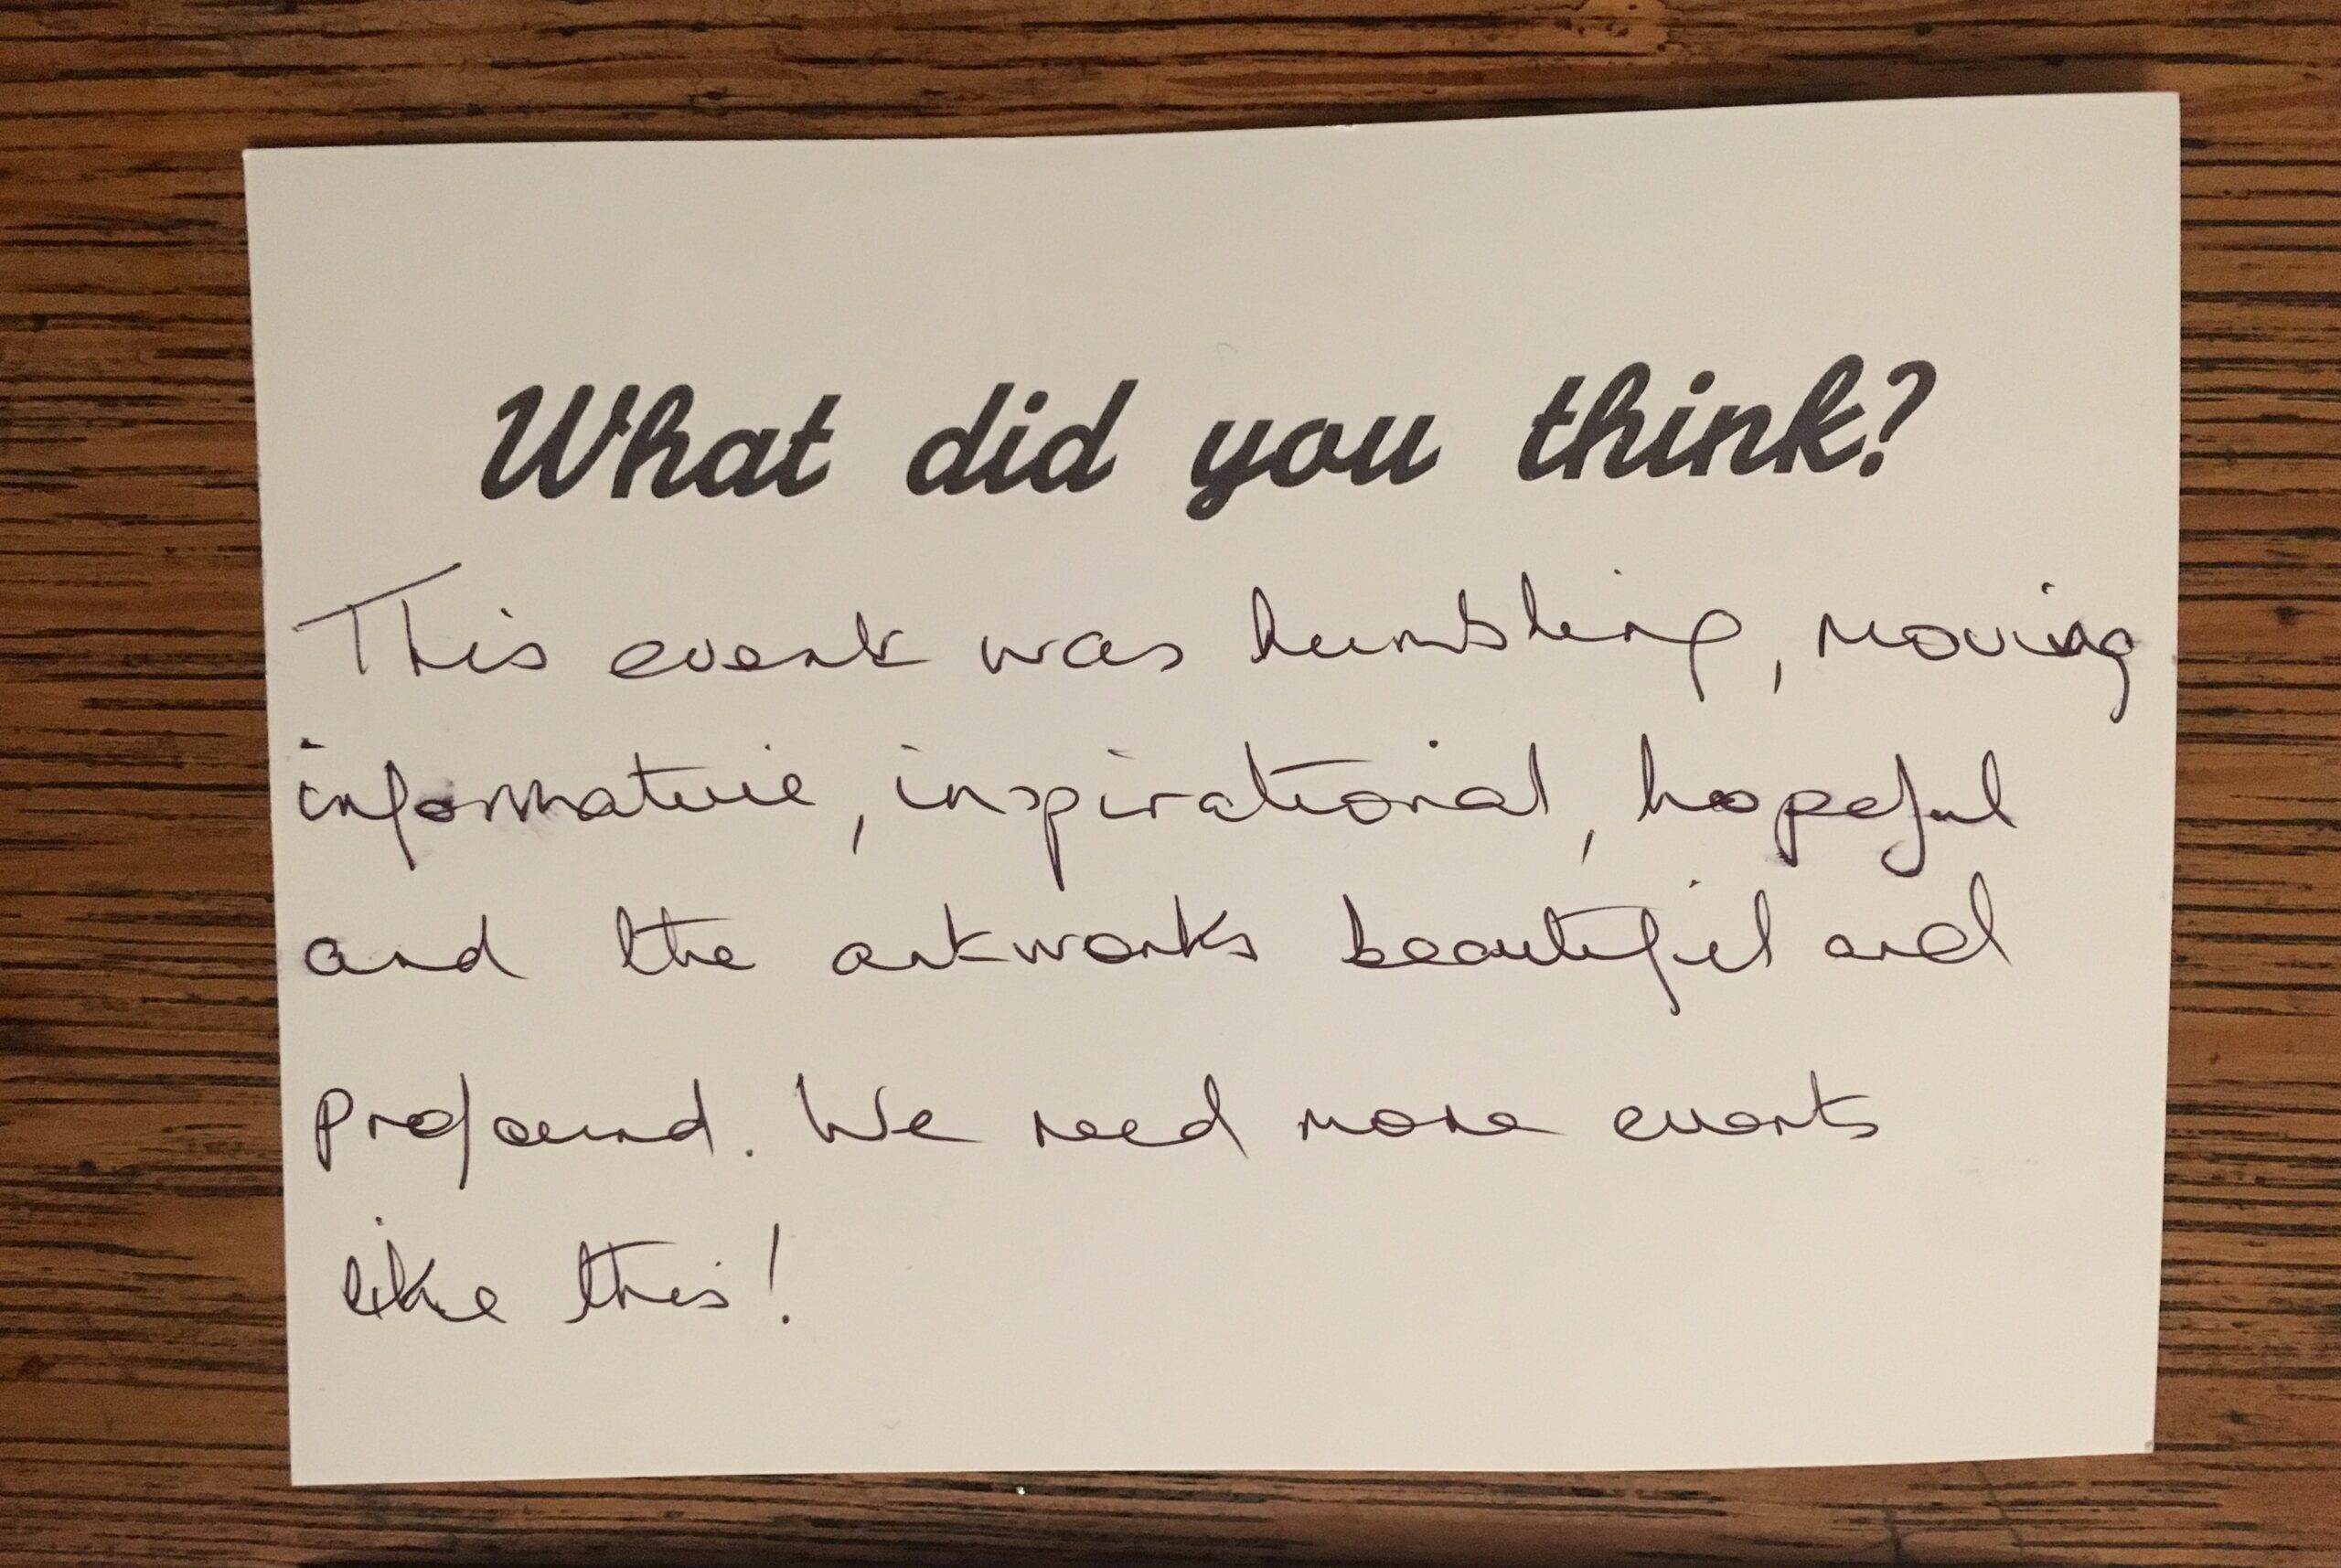 What did you think?
This event was humbling, moving
informative, inspirational, hopeful
and the artworks beautiful and
profound. We need more events
like this!